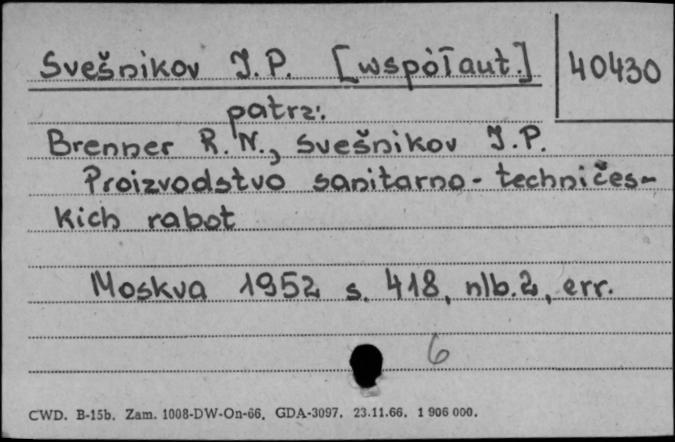 Svešnikov I.P. [współaut.]
40430
patrz:
Brenner R.N., Svešnikov I.P.
Proizvodstvo sanitarno-techničes-
kich rabot
Moskva 1952 s. 418, nlb.2, err.
6
CWD. B-15b. Zam. 1008-DW-On-66. GDA-3097. 23.11.66. 1 906 000.